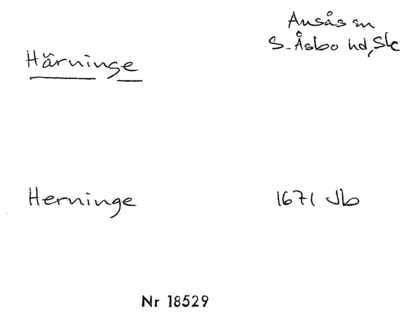 Ausås sn
S. Åsbo hd, Sk
Härninge
Herninge 1671 Jb
Nr 18529